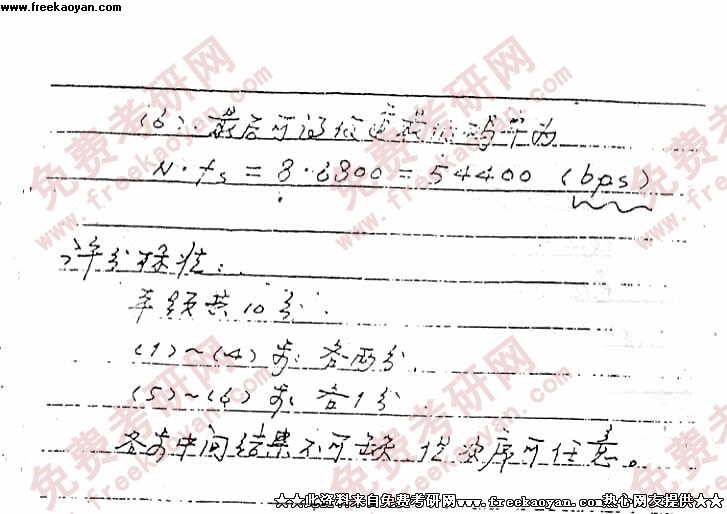 www.freekaoyan.com
(6):最后可得信道载的码率为
N·fs = 8·6800 = 54400 (bps)
评分标准:
本题共10分.
(1)~(4) 步: 各两分
(5)~(6) 步: 各1分
各步中间结果不可缺, 但次序可任意。
★★此资料来自免费考研网www.freekaoyan.com热心网友提供★★